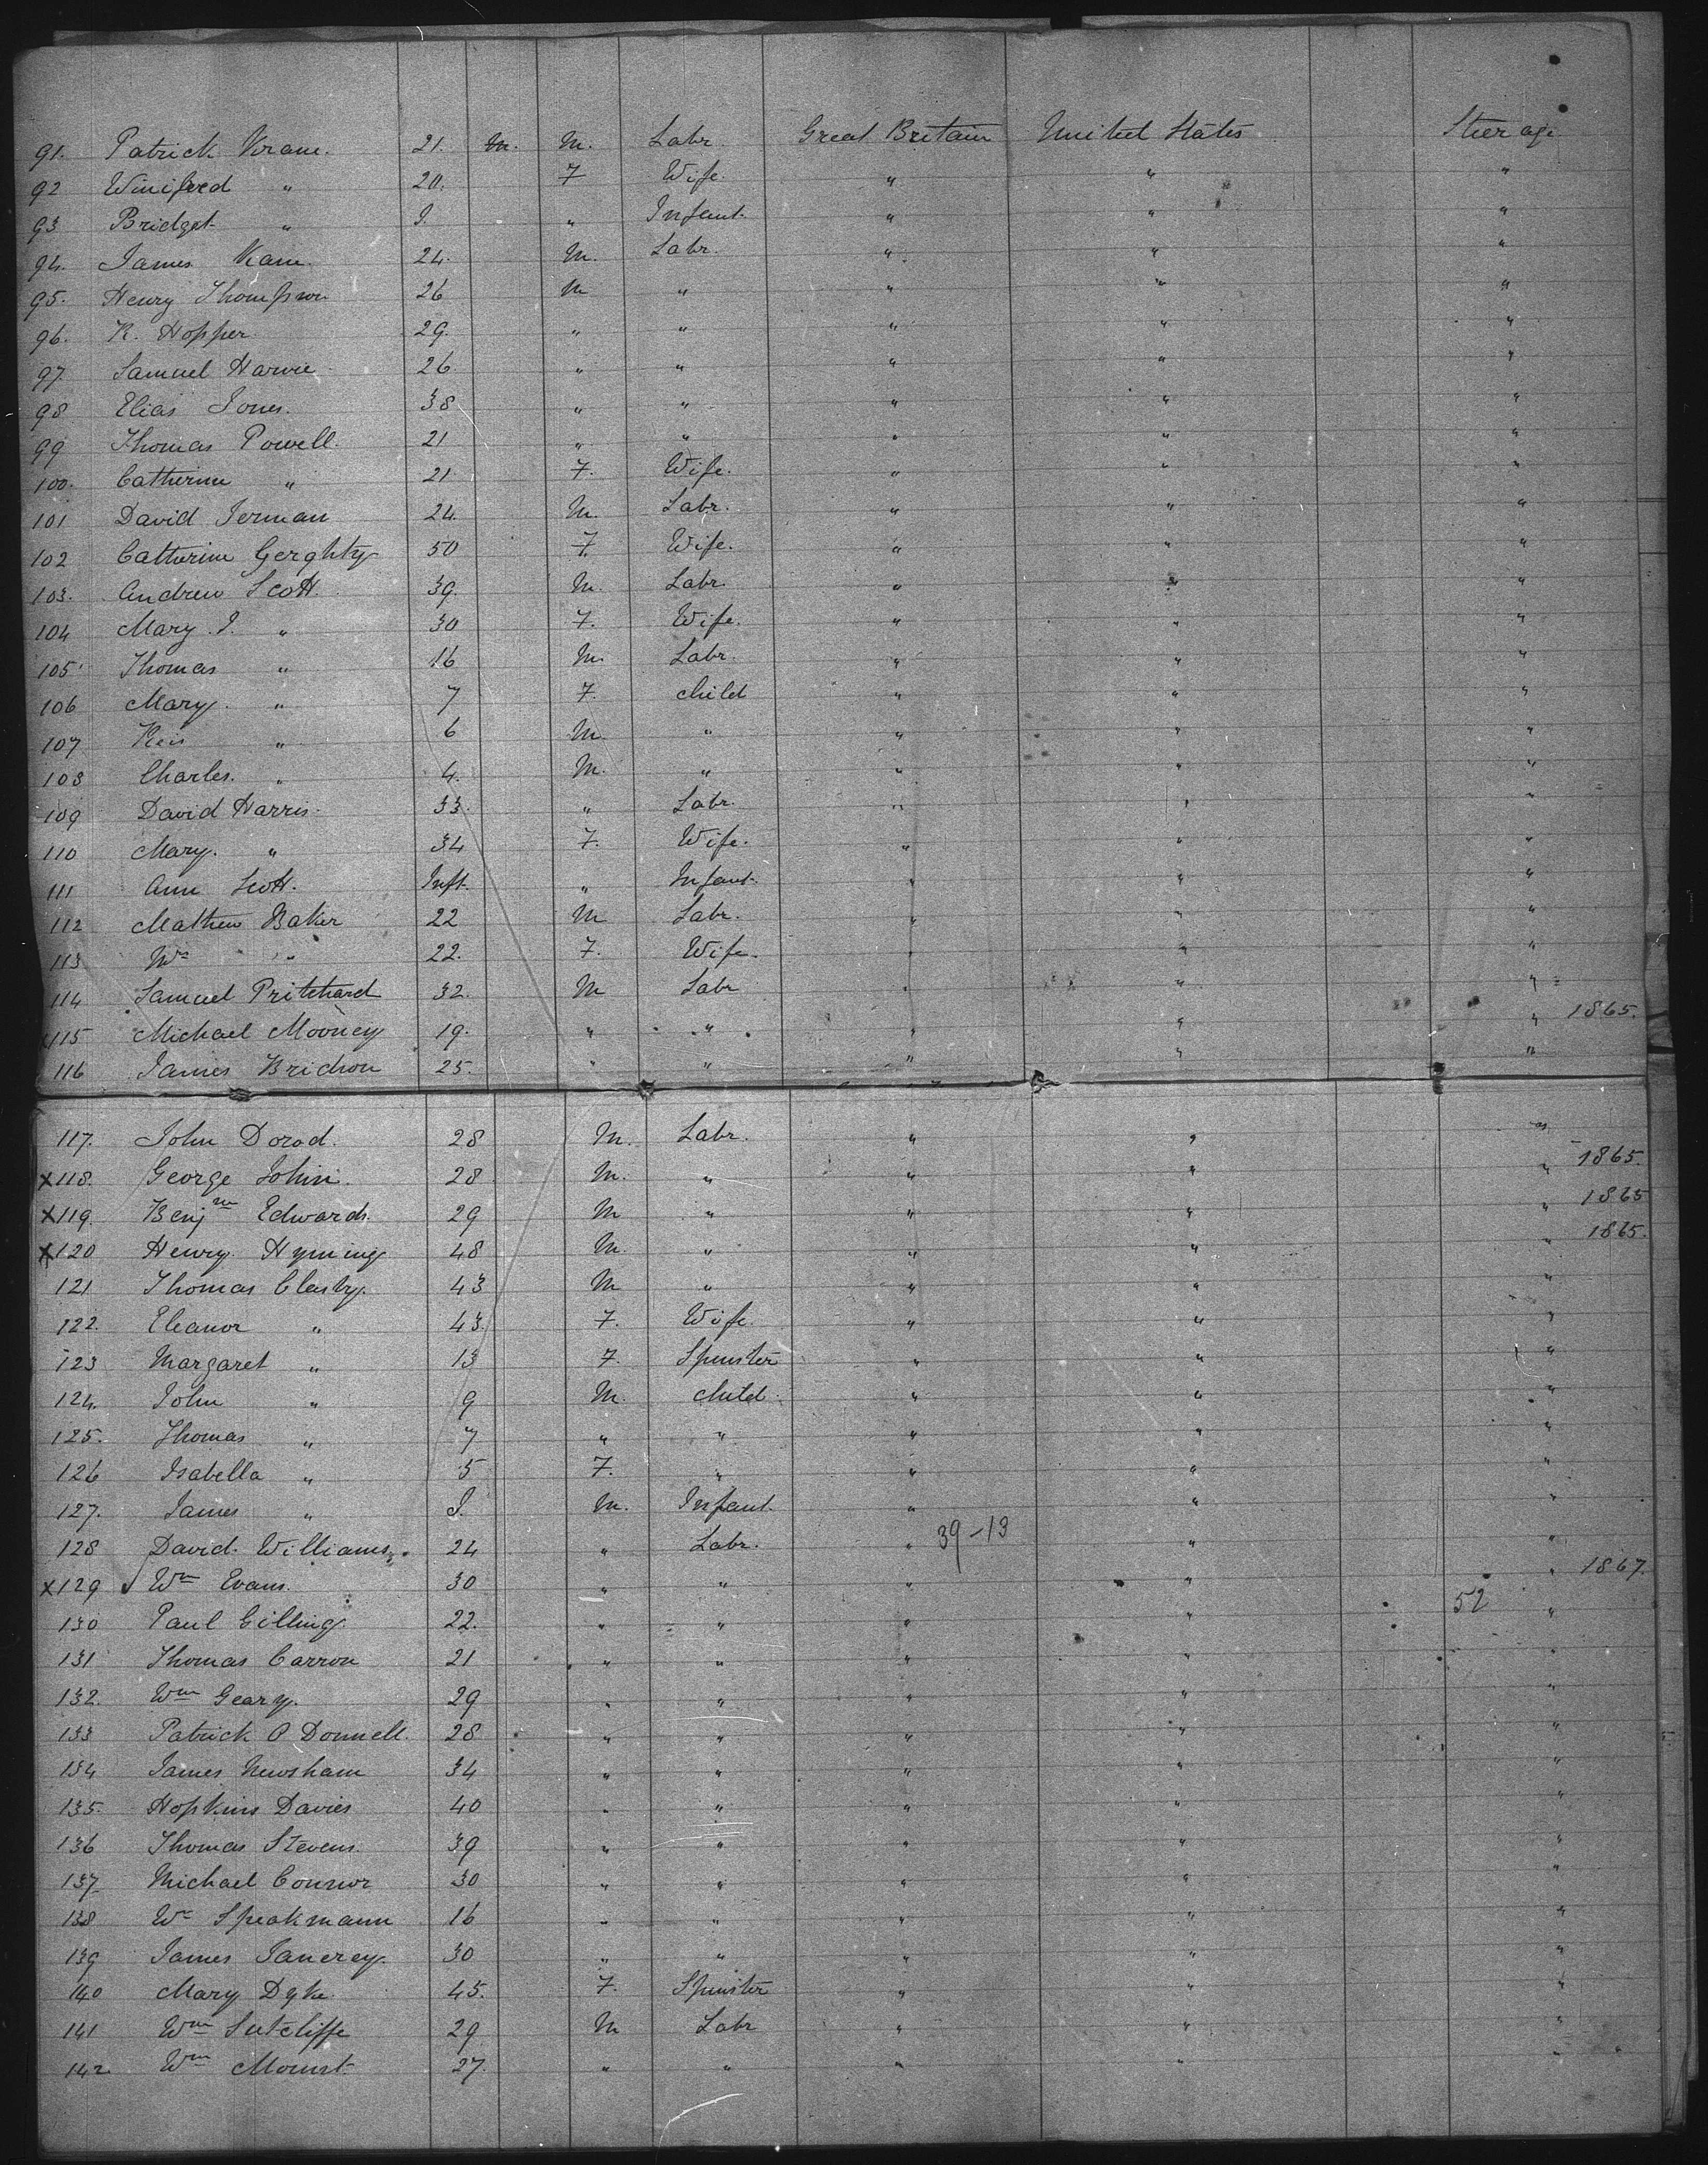 91. Patrick Krane. 21. m. M. Labr. Great Britain United States Steerage
92 Winifred " 20. F Wife " " "
93 Bridget " I. " Infant. " " "
94. James Kane. 24. M. Labr. " " "
95. Henry Thompson 26 M " " " "
96. R. Hopper. 29. " " " " "
97 Samuel Harvie 26 " " " " "
98 Elias Jones. 38 " " " " "
99 Thomas Powell. 21 " " " " "
100. Catherine " 21. F. Wife. " " "
101 David Jerman 24. M. Labr. " " "
102 Catherine Gerghty 50 F. Wife. " " "
103. Andrew Scott. 39. M. Labr. " " "
104 Mary. J. " 30 F. Wife. " " "
105 Thomas " 16 M. Labr. " " "
106 Mary. " 7 F. child " " "
107 " 6 M. " " " "
108 Charles. " 4. M. " " " "
109 David Harris. 33. " Labr. " " "
110 Mary. " 34 F. Wife. " " "
111 Ann Scott. Inft. " Infant. " " "
112 Mathew Baker 22 M Labr. " " "
113 " 22. F. Wife. " " "
114 Samuel Pritchard 32. M Labr " " "
115 Michael Mooney 19. " " " " " 1865.
116 James Bridson 25. " " " " "
117. John Dorad. 28 M. Labr. " " "
x118. George John. 28 M. " " " " 1865.
x119. Benjm Edwards. 29 M " " " " 1865
x120 Henry Hyming 48 M. " " " " 1865.
121 Thomas Clasby. 43 M " " " "
122. Eleanor " 43. F. Wife. " " "
123 Margaret " 13 F. Spinster " " "
124. John " 9 M. child " " "
125. Thomas " 7 " " " " "
126 Isabella " 5 F. " " " "
127. James " I. M. Infant. " " "
128 David Williams. 24 " Labr. " 39-13 " "
x129 Wm Evans. 30 " " " " " 1867.
130 Paul Gilling. 22. " " " " 52 "
131 Thomas Carron 21 " " " " "
132. Wm Geary. 29 " " " " "
133 Patrick O Donnell. 28 " " " " "
134 James Newsham 34 " " " " "
135. Hopkins Davies 40 " " " " "
136 Thomas Stevens. 39 " " " " "
137 Michael Connor 30 " " " " "
138 Wm Speakmann 16 " " " " "
139 James Sanerey. 30 " " " " "
140 Mary Dyke. 45. F. Spinster " " "
141 Wm Sutcliffe 29 M Labr " " "
142 Wm Mount. 27. " " " " "